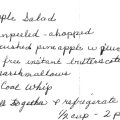 ple Salad
unpeeled - chopped
ushed pineapple w
free instant butterscot
marshmallows
Cool Whip
together & refrigerate
1/2 cup - 2 p